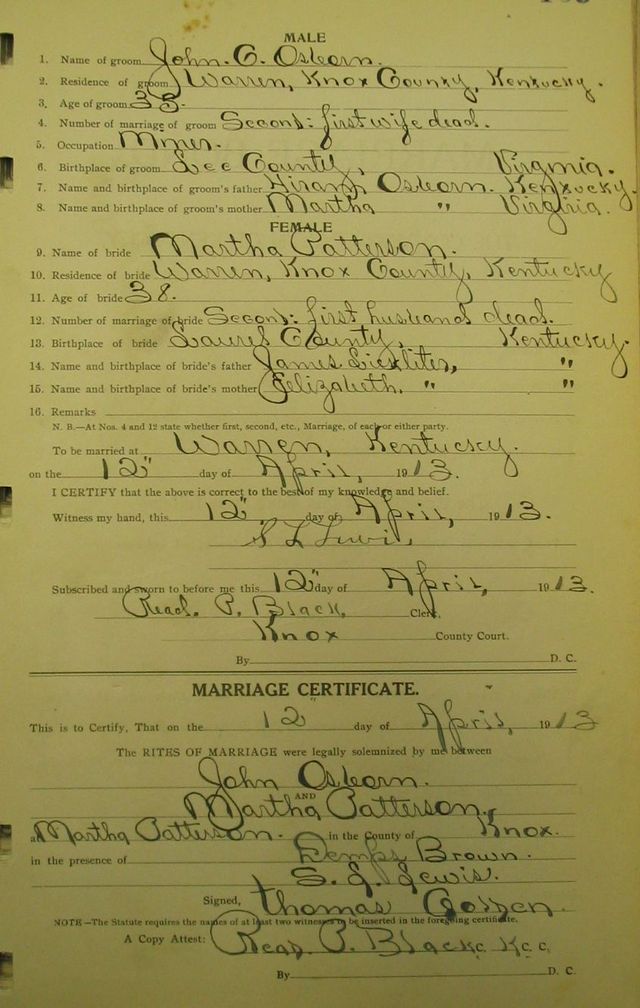 MALE
1. Name of groom John. C. Osborn.
2. Residence of groom Warren, Knox County, Kentucky.
3. Age of groom 38.
4. Number of marriage of groom Second: first wife dead.
5. Occupation Miner.
6. Birthplace of groom Lee County, Virginia.
7. Name and birthplace of groom's father Hiram Osborn. Kentucky.
8. Name and birthplace of groom's mother Martha " Virginia.
FEMALE
9. Name of bride Martha Patterson.
10. Residence of bride Warren, Knox County, Kentucky
11. Age of bride 38.
12. Number of marriage of bride Second: first husband dead.
13. Birthplace of bride Laurel County, Kentucky.
14. Name and birthplace of bride's father James "
15. Name and birthplace of bride's mother Elizabeth. " "
16. Remarks
N. B.—At Nos. 4 and 12 state whether first, second, etc., Marriage, of each or either party.
To be married at Warren, Kentucky.
on the 12" day of April, 1913.
I CERTIFY that the above is correct to the best of my knowledge and belief.
Witness my hand, this 12" day of April, 1913.
S L Lewis,
Subscribed and sworn to before me this 12" day of April, 1913.
Read. P. Black, Clerk,
Knox County Court.
By D. C.
MARRIAGE CERTIFICATE.
This is to Certify, That on the 12" day of April, 1913
The RITES OF MARRIAGE were legally solemnized by me between
John Osborn.
AND
Martha Patterson,
at Martha Patterson. in the County of Knox.
in the presence of Demps Brown.
S. L. Lewis.
Signed, Thomas
NOTE—The Statute requires the names of at least two witnesses to be inserted in the foregoing certificate.
A Copy Attest: Read P. Black C. K. C. C.
By D. C.